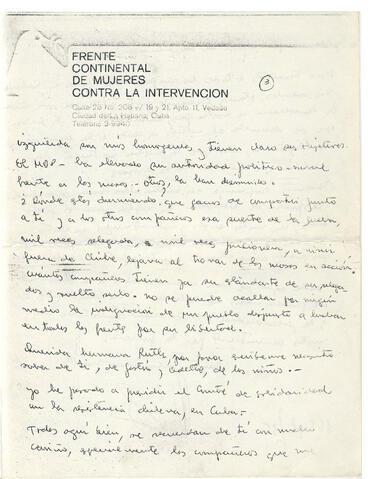 FRENTE
CONTINENTAL
DE MUJERES
CONTRA LA INTERVENCION
Calle 28 No. 206 e/ 19 y 21, Apto 11, Vedado
Ciudad de La Habana, Cuba
Teléfono 3-9940
3
izquierda son más homogenea y tienen claro sus objetivos.
El MDP - ha elevado su autoridad político-moral
frente a las masas - otros, la han disminuido.
¿Dónde estás durmiendo, que ganas de compartir junto
a ti, y a los otros compañeros esa suerte de la
mil veces relegada, o mil veces prisionera, a vivir
fuera de Chile, lejana al tronar de las masas en acción.
cuantos compañeros tienen ya su
y muchos serlo. no se puede acallar por ningún
medio la indignación de un pueblo dispuesto a luchar
en todos los frente por su libertad.
Querida hermana Ruth, por favor escribeme necesito
saber de ti, de y de los niños. -
yo he pasado a presidir el Comité de solidaridad
con la resistencia chilena, en Cuba. -
Todos aquí bien, se recuerdan de ti con mucho
cariño, especialmente los compañeros que me